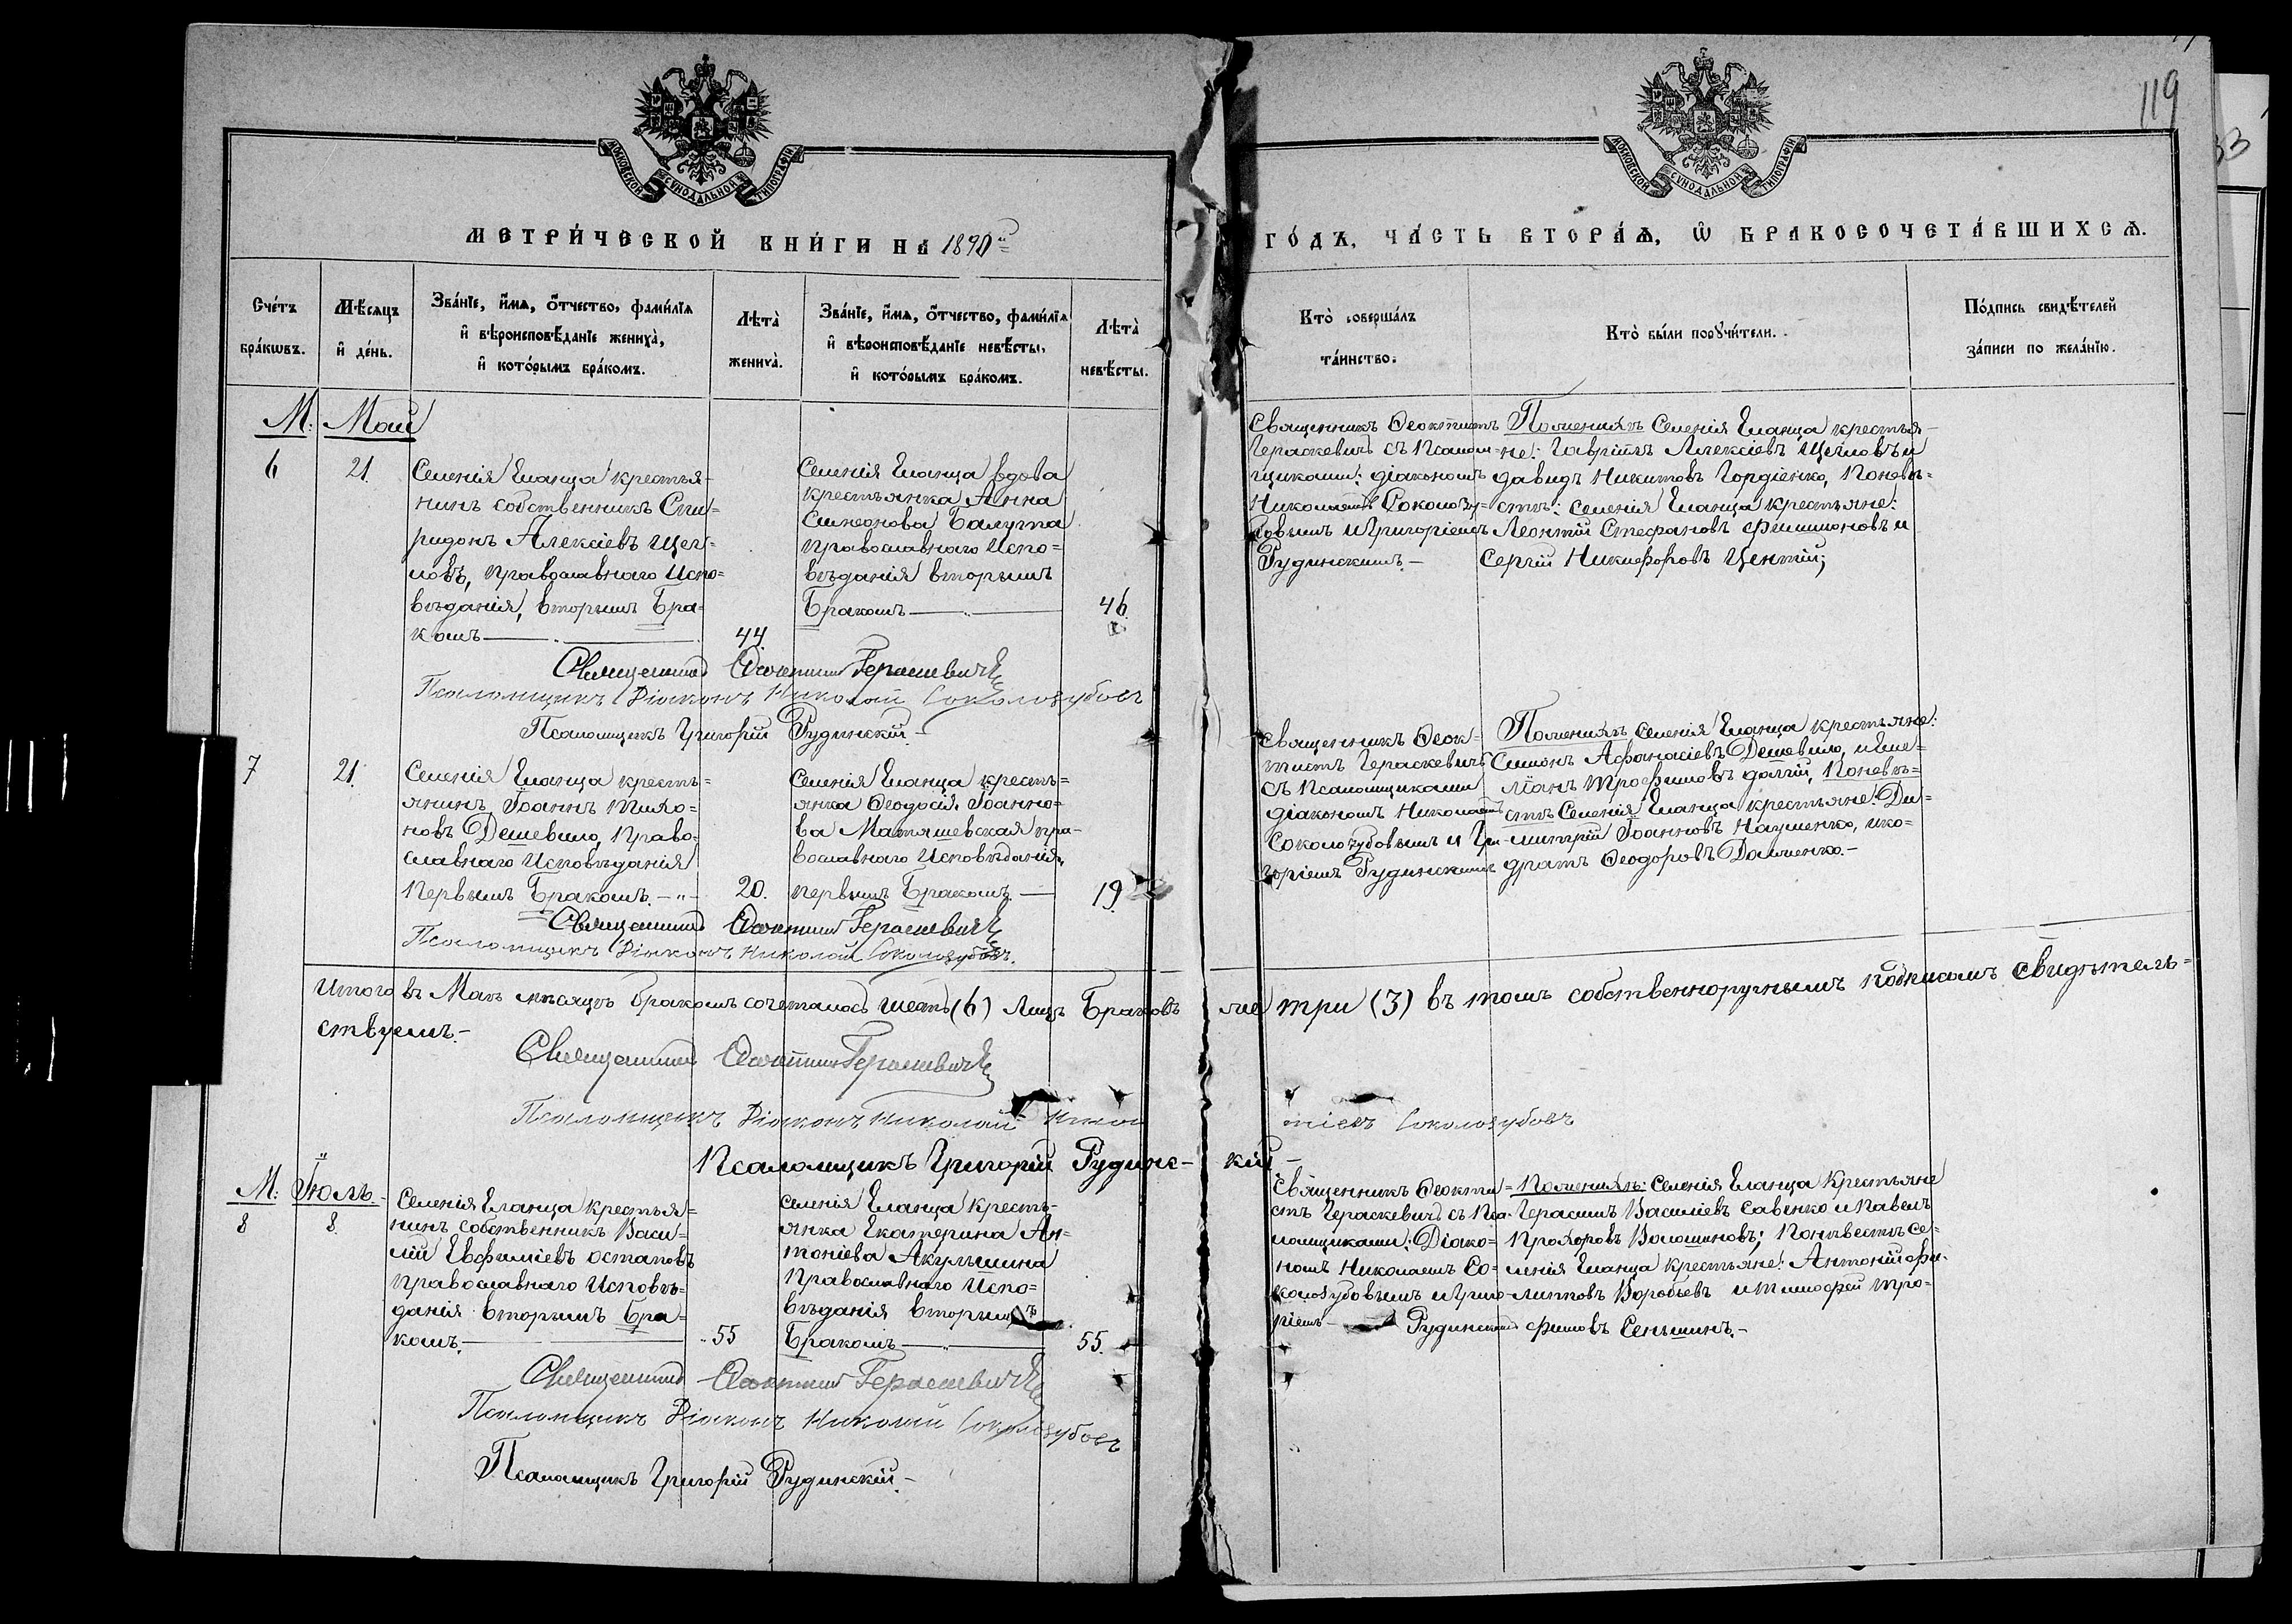 119
33
МОСКОВСКОЙ СѴНОДАЛЬНОЙ ТИПОГРАФІИ
МОСКОВСКОЙ СѴНОДАЛЬНОЙ ТИПОГРАФІИ
МЕТРИ́ЧЕСКОЙ КНИ́ГИ НА 1890й
ГО́ДЪ, ЧА́СТЬ ВТОРА́Ѧ, Ѽ БРАКОСОЧЕТА́ВШИХСѦ.
Сче́тъ
бра́кѡвъ.
Мѣ́сѧцъ
и҆ де́нь.
Зва́нїе, и҆́мѧ, ѻ҆́тчество, фами́лїѧ
и҆ вѣроисповѣ́данїе жениха̀,
и҆ кото́рымъ бра́комъ.
Лѣта̀
жениха̀.
Зва́нїе, и҆́мѧ, ѻ҆́тчество, фами́лїѧ
и҆ вѣроисповѣ́данїе невѣ́сты,
и҆ кото́рымъ бра́комъ.
Лѣта̀
невѣ́сты.
Кто̀ соверша́лъ
та́инство.
Кто̀ бы́ли порꙋчи́тели.
По́дпись свидѣ́телей
за́писи по жела́нїю.
М: Май
6
21.
Селенія Еланца крестья-
нинъ собственникъ Спи=
ридонъ Алексіевъ Щег=
ловъ, православнаго Испо=
вѣданія, вторымъ Бра=
комъ
44.
Селенія Еланца вдова
крестьянка Анна
Симеонова Балута
православнаго Испо=
вѣданія вторымъ
Бракомъ
46.
Священникъ Ѳеоктистъ
Гераскевичъ съ Псалом-
щиками: діакономъ
Николаемъ Соколозу=
бовымъ и Григоріемъ
Рудинскимъ.-
По женихѣ Селенія Еланца крестья-
не: Гавріилъ Алексіевъ Щегловъ и
Давидъ Никитовъ Гордіенко, По невѣ=
стѣ: Селенія Еланца крестьяне:
Леонтій Стефановъ Филимоновъ и
Сергій Никифоровъ Центій;
Священникъ Ѳеоктистъ Гераскевичъ
Псаломщикъ Діаконъ Николай Соколозубовъ
Псаломщикъ Григорій Рудинскій.-
7
21.
Селенія Еланца кресть=
янинъ Іоаннъ Тихо=
новъ Дешевило, Право=
славнаго Исповѣданія
Первымъ Бракомъ.-"-
20.
Селенія Еланца кресть=
янка Ѳеодосія Іоанно=
ва Матяшевская пра-
вославнаго Исповѣданія,
первымъ Бракомъ
19.
Священникъ Ѳеок=
тистъ Гераскевичъ
съ Псаломщиками
діакономъ Николаемъ
Соколозубовымъ и Гри-
горіемъ Рудинскимъ
По женихѣ Селенія Еланца крестьяне:
Симонъ Аѳанасіевъ Дешевило, и Еме=
ліанъ Трофимовъ Долгій, По невѣ=
стѣ Селенія Еланца крестьяне: Ди=
митрій Іоанновъ Науменко, и Ко=
дратъ Ѳеодоровъ Дашенко.-
Священникъ Ѳеоктистъ Гераскевичъ
Псаломщикъ Діаконъ Николай Соколозубовъ.
Итого въ Маѣ мѣсяцѣ бракомъ сочеталось шесть (6) лицъ Браковъ же три (3) въ томъ собственноручнымъ подписомъ свидѣтель=
ствуемъ.-
Священникъ Ѳеоктистъ Гераскевичъ
Псаломщикъ Діаконъ Николай Соколозубовъ
Псаломщикъ Григорій Рудинскій-
М: Іюль.
8
8.
Селенія Еланца крестья=
нинъ собственникъ Васи=
лій Евфиміевъ Остаповъ
православнаго Исповѣ=
данія вторымъ Бра=
комъ.
55
Селенія Еланца кресть-
янка Екатерина Ан=
тоніева Акульшина
Православнаго Испо=
вѣданія вторымъ
Бракомъ
55.
Священникъ Ѳеокти=
стъ Гераскевичъ съ Пса-
ломщиками: Діако=
номъ Николаемъ Со=
колозубовымъ и Григо-
ріемъ- Рудинскимъ
По женихѣ: Селенія Еланца Крестьяне
Герасимъ Василіевъ Савенко и Павелъ
Прохоровъ Волошиновъ; По невѣстѣ Се=
ленія Еланца крестьяне: Антоній Фи-
липповъ Воробьевъ и Тимофей Тро-
фимовъ Сеньшинъ.-
Священникъ Ѳеоктистъ Гераскевичъ
Псаломщикъ Діаконъ Николай Соколозубовъ
Псаломщикъ Григорій Рудинскій.-